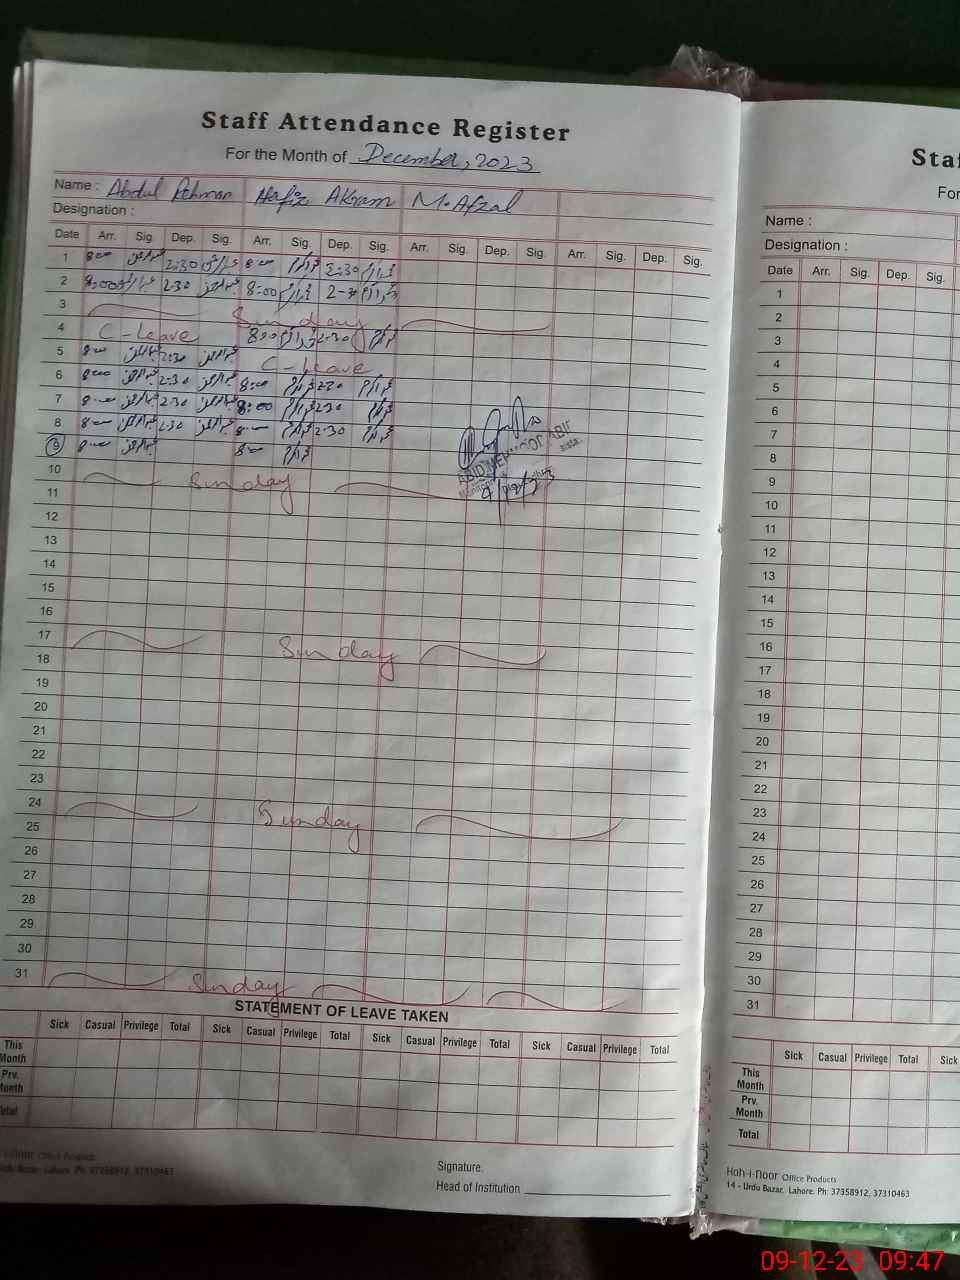 Staff Attendance Register
For the Month of December, 2023
Name : Abdul Rehman Hafiz Akram M. Afzal
Designation :
Date Arr. Sig. Dep. Sig. Arr. Sig. Dep. Sig. Arr. Sig. Dep. Sig. Arr. Sig. Dep. Sig.
1 8:00 2:30 8:00 2:30
2 8:00 2:30 8:00 2-30
3 Sunday
4 C-Leave 8:00 2:30
5 8:00 2:30 C-Leave
6 8:00 2:30 8:00 2:30
7 8:00 2:30 8:00 2:30
8 8:00 2:30 8:00 2-30
9 8:00 8:00
10 Sunday
11
12
13
14
15
16
17 Sunday
18
19
20
21
22
23
24 Sunday
25
26
27
28
29
30
31 Sunday
STATEMENT OF LEAVE TAKEN
Sick Casual Privilege Total Sick Casual Privilege Total Sick Casual Privilege Total Sick Casual Privilege Total
This Month
Prv. Month
Total
-i-noor Office Products
Urdu Bazar, Lahore. Ph: 37358912, 37310463
Signature.
Head of Institution
Sta
For
Name :
Designation :
Date Arr. Sig. Dep. Sig.
1
2
3
4
5
6
7
8
9
10
11
12
13
14
15
16
17
18
19
20
21
22
23
24
25
26
27
28
29
30
31
Sick Casual Privilege Total Sick
This Month
Prv. Month
Total
Hoh-i-noor Office Products
14 - Urdu Bazar, Lahore. Ph: 37358912, 37310463
09-12-23 09:47